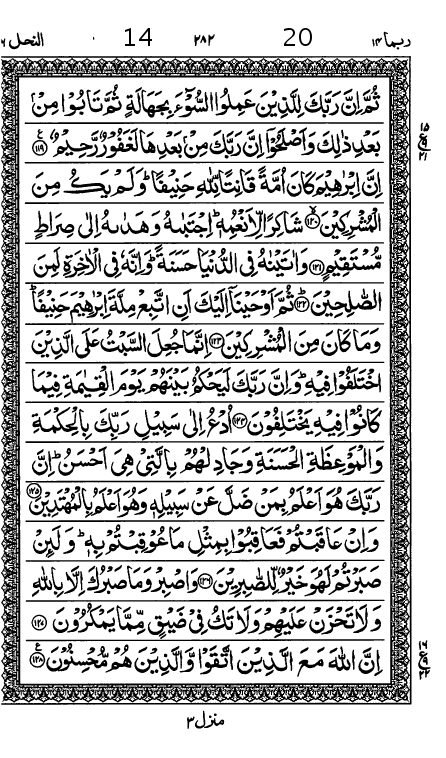 ربما ١٤ 20 ٢٨٢ 14 النحل ١٦
ثُمَّ اِنَّ رَبَّكَ لِلَّذِيْنَ عَمِلُوا السُّوْٓءَ بِجَهَالَةٍ ثُمَّ تَابُوْا مِنْۢ
بَعْدِ ذٰلِكَ وَاَصْلَحُوْۤا اِنَّ رَبَّكَ مِنْۢ بَعْدِهَا لَغَفُوْرٌ رَّحِيْمٌ ﴿١١٩﴾
اِنَّ اِبْرٰهِيْمَ كَانَ اُمَّةً قَانِتًا لِّلّٰهِ حَنِيْفًا ؕ وَلَمْ يَكُ مِنَ
الْمُشْرِكِيْنَ ﴿١٢٠﴾ شَاكِرًا لِّاَنْعُمِهٖ ؕ اِجْتَبٰىهُ وَهَدٰىهُ اِلٰى صِرَاطٍ
مُّسْتَقِيْمٍ ﴿١٢١﴾ وَاٰتَيْنٰهُ فِى الدُّنْيَا حَسَنَةً ؕ وَاِنَّهٗ فِى الْاٰخِرَةِ لَمِنَ
الصّٰلِحِيْنَ ﴿١٢٢﴾ ثُمَّ اَوْحَيْنَاۤ اِلَيْكَ اَنِ اتَّبِعْ مِلَّةَ اِبْرٰهِيْمَ حَنِيْفًا ؕ
وَمَا كَانَ مِنَ الْمُشْرِكِيْنَ ﴿١٢٣﴾ اِنَّمَا جُعِلَ السَّبْتُ عَلَى الَّذِيْنَ
اخْتَلَفُوْا فِيْهِ ؕ وَاِنَّ رَبَّكَ لَيَحْكُمُ بَيْنَهُمْ يَوْمَ الْقِيٰمَةِ فِيْمَا
كَانُوْا فِيْهِ يَخْتَلِفُوْنَ ﴿١٢٤﴾ اُدْعُ اِلٰى سَبِيْلِ رَبِّكَ بِالْحِكْمَةِ
وَالْمَوْعِظَةِ الْحَسَنَةِ وَجَادِلْهُمْ بِالَّتِيْ هِيَ اَحْسَنُ ؕ اِنَّ
رَبَّكَ هُوَ اَعْلَمُ بِمَنْ ضَلَّ عَنْ سَبِيْلِهٖ وَهُوَ اَعْلَمُ بِالْمُهْتَدِيْنَ ﴿١٢٥﴾
وَاِنْ عَاقَبْتُمْ فَعَاقِبُوْا بِمِثْلِ مَا عُوْقِبْتُمْ بِهٖ ؕ وَلَئِنْ
صَبَرْتُمْ لَهُوَ خَيْرٌ لِّلصّٰبِرِيْنَ ﴿١٢٦﴾ وَاصْبِرْ وَمَا صَبْرُكَ اِلَّا بِاللّٰهِ
وَلَا تَحْزَنْ عَلَيْهِمْ وَلَا تَكُ فِيْ ضَيْقٍ مِّمَّا يَمْكُرُوْنَ ﴿١٢٧﴾
اِنَّ اللّٰهَ مَعَ الَّذِيْنَ اتَّقَوْا وَّالَّذِيْنَ هُمْ مُّحْسِنُوْنَ ﴿١٢٨﴾
١٥ ع ٢١
١٦ ع ٢٢
منزل ٣